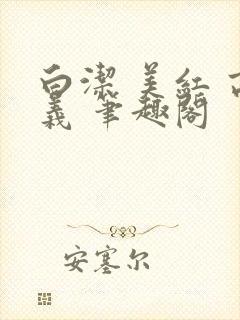 白潔 美紅 高
義 筆趣閣
安塞尔